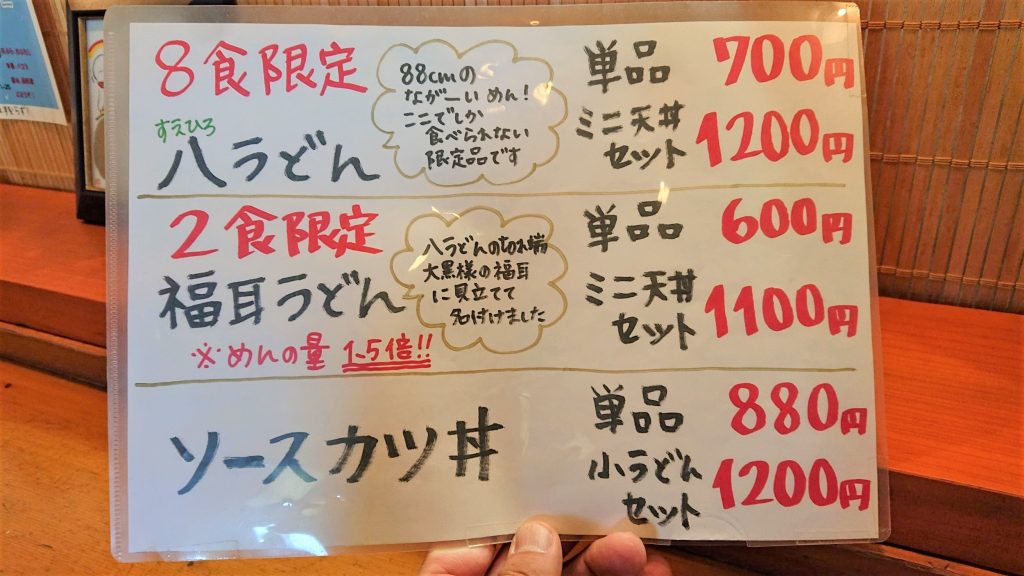 8食限定
すえひろ
八うどん
88cmの
ながーいめん!
ここでしか
食べられない
限定品です
単品 700円
ミニ天丼
セット 1200円
2食限定
福耳うどん
※めんの量 1.5倍!!
八うどんの切れ端
大黒様の福耳
に見立てて
名付けました
単品 600円
ミニ天丼
セット 1100円
ソースカツ丼
単品 880円
小うどん
セット 1200円